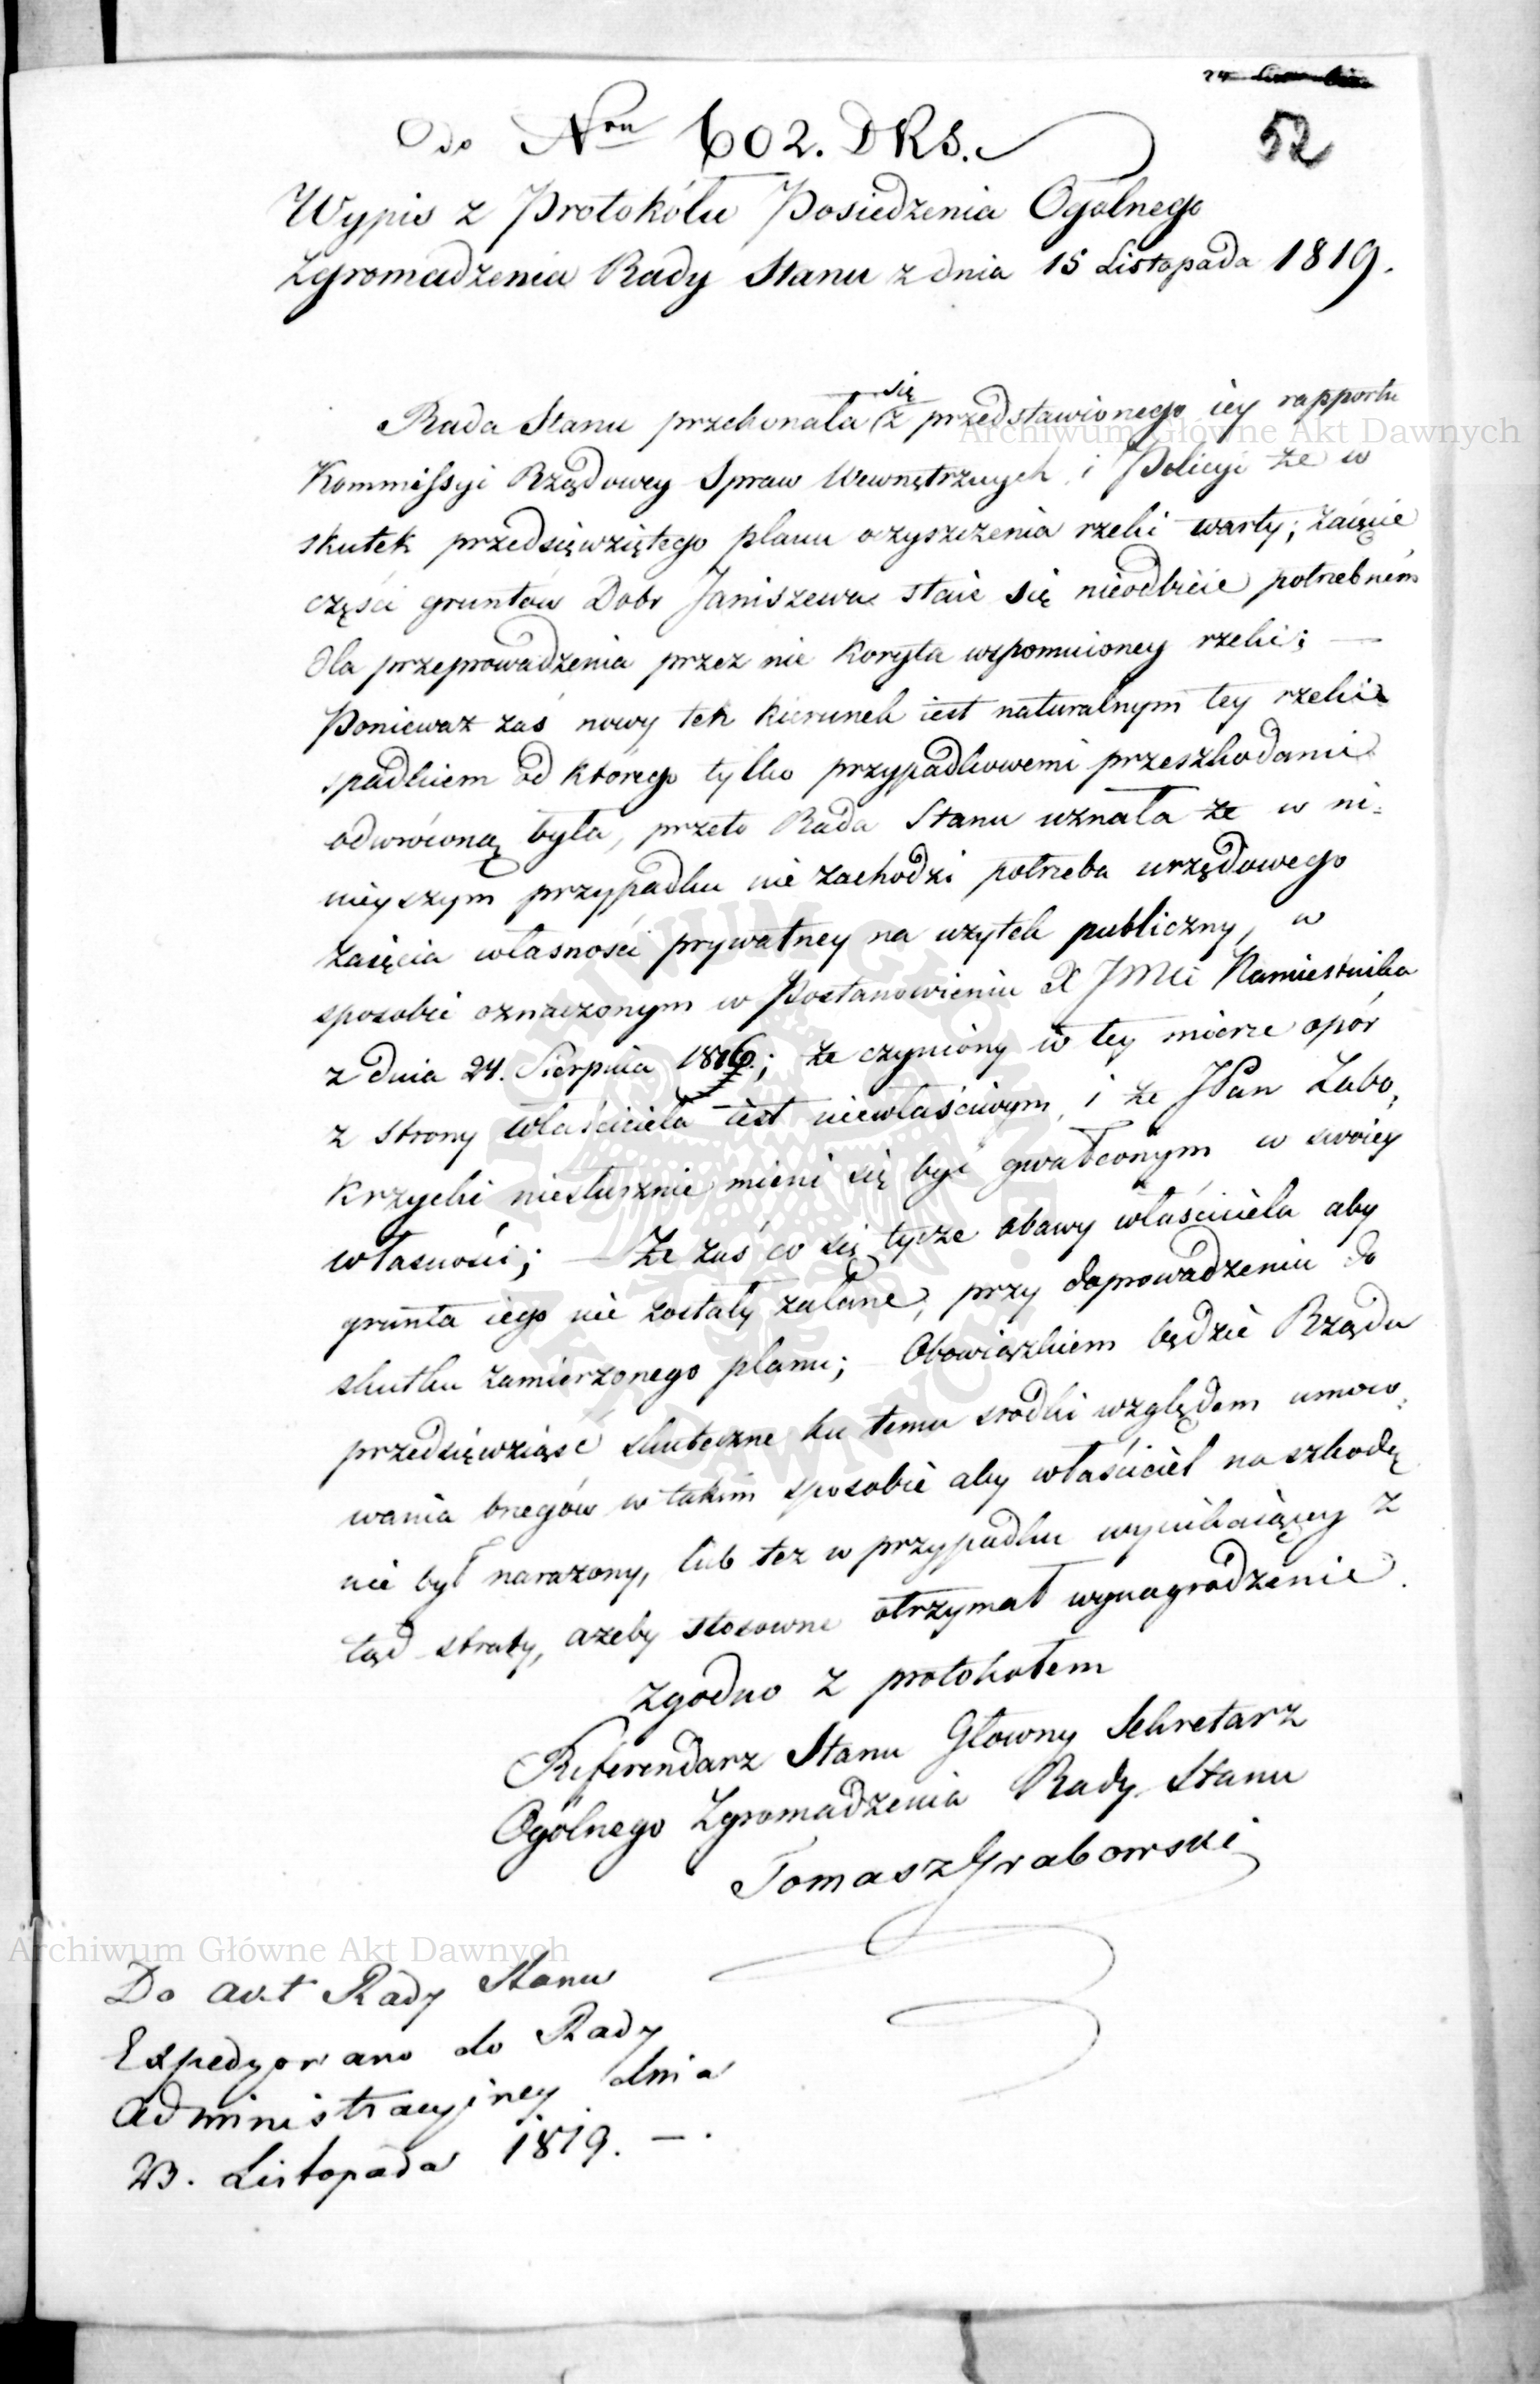 52
Do Nru 602. DRS.
Wypis z Protokółu Posiedzenia Ogólnego
Zgromadzenia Rady Stanu z dnia 15 Listopada 1819.
Rada Stanu przekonała się z przedstawionego iey rapportu
Kommissyi Rządowey Spraw Wewnętrznych i Policyi że w
skutek przedsięwziętego planu oczyszczenia rzeki warty; zaięcie
części gruntów Dobr Janiszewa staie się nieodbicie potrzebném
dla przeprowadzenia przez nie koryta wspomnioney rzeki; —
Ponieważ zaś nowy ten kierunek iest naturalnym tey rzeki
spadkiem od którego tylko przypadkowemi przeszkodami
odwróconą była, przeto Rada Stanu uznała że w ni-
nieyszym przypadku nie zachodzi potrzeba urzędowego
zaięcia własności prywatney na użytek publiczny, w
sposobie oznaczonym w Postanowieniu X JMci Namiestnika
z dnia 24. Sierpnia 1816.; że czyniony w tey mierze opór
z strony właściciela iest niewłaściwym, i że JPan Zabo-
krzycki niesłusznie mieni się być gwałconym w swoiey
własności; — Że zaś co się tycze obawy właściciela aby
grunta iego nie zostały zalane, przy doprowadzeniu do
skutku zamierzonego planu; Obowiązkiem będzie Rządu
przedsięwziąść skuteczne ku temu srodki względem umoco-
wania brzegów w takim sposobie aby właściciel na szkodę
nie był narażony, lub też w przypadku wynikaiącey z
tąd straty, ażeby stosowne otrzymał wynagrodzenie.
Zgodno z protokołem
Referendarz Stanu Główny Sekretarz
Ogólnego Zgromadzenia Rady Stanu
Tomasz Grabowski
Do akt Rady Stanu
Expedyowano do Rady
Administracyjney dnia
23. Listopada 1819. —.
Archiwum Główne Akt Dawnych
Archiwum Główne Akt Dawnych
ARCHIWUM GŁÓWNE AKT DAWNYCH